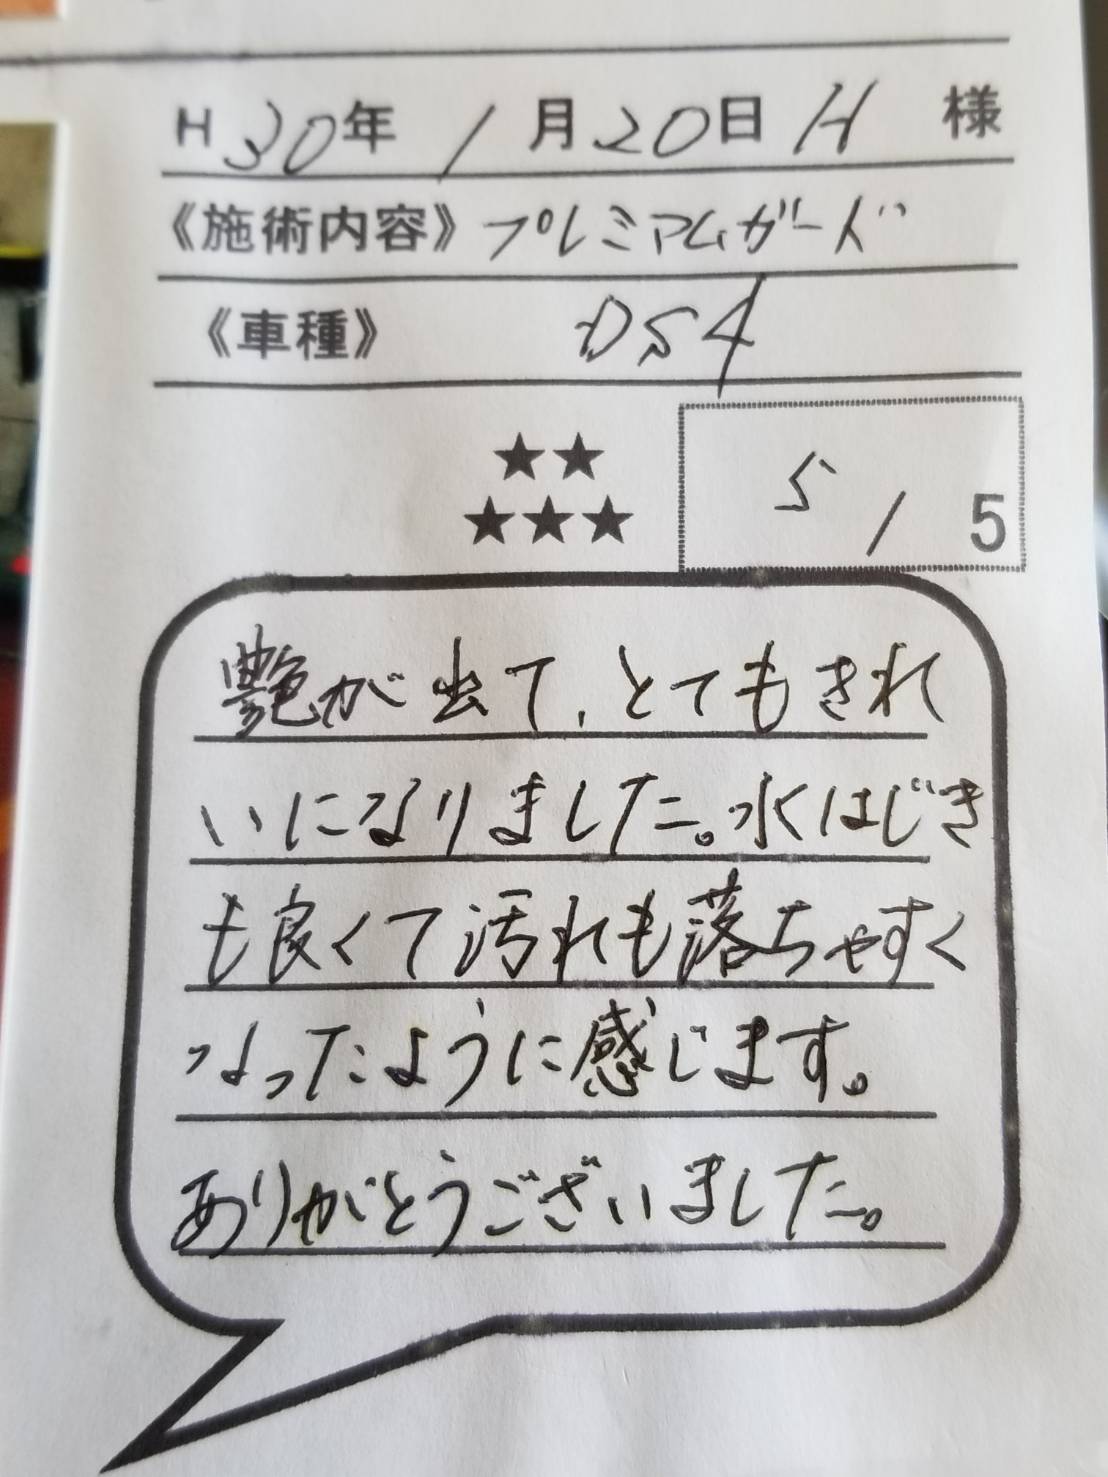 H30年1月20日 H 様
《施術内容》プレミアムガード
《車種》 DS4
★★
★★★
5/5
艶が出て、とてもきれ
いになりました。水はじき
も良くて汚れも落ちやすく
なったように感じます。
ありがとうございました。